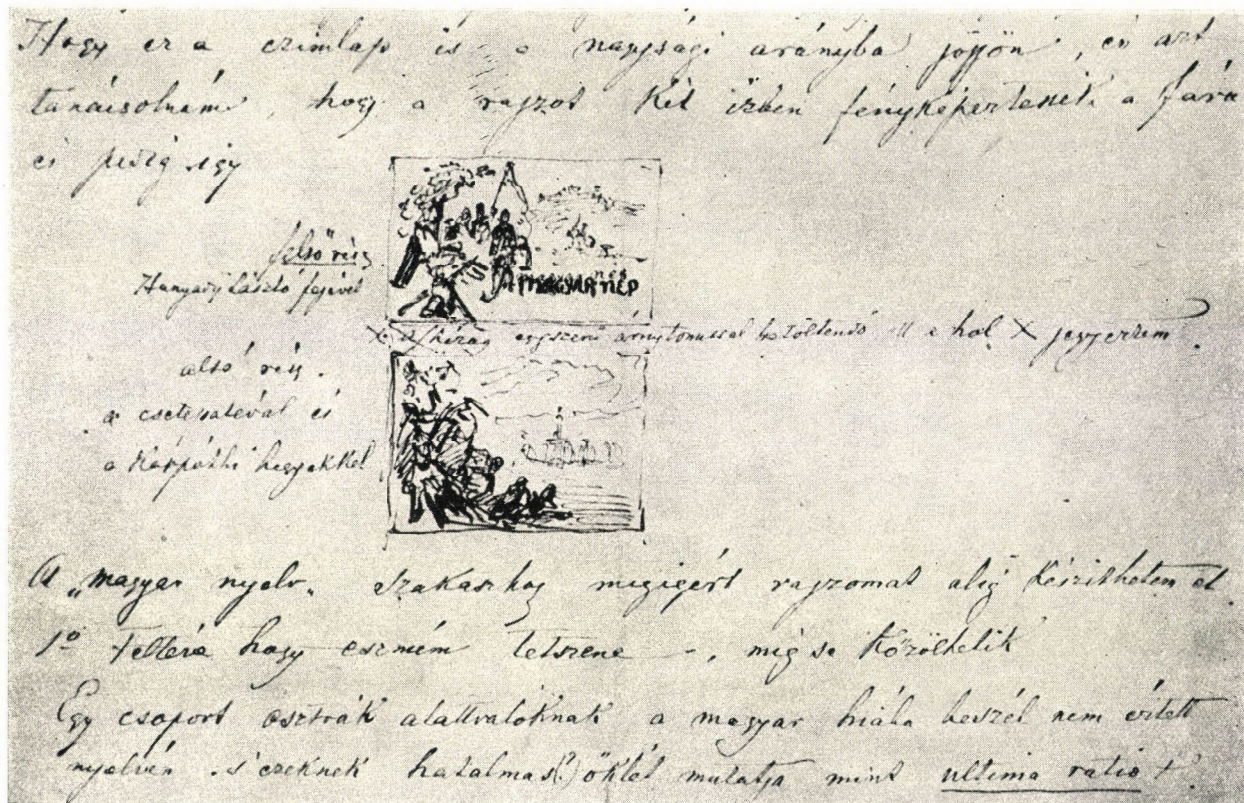 Hogy ez a czimlap is a nagysági arányba jöjjön, én azt
tanácsolnám, hogy a rajzot két izben fényképeztessék a fára
és pedig így
felső rész
Hunyady László fejével
A MAGYAR NÉP
X a hézag egyszerü árnytonussal betöltendő itt a hol X jegyeztem.
alsó rész.
a csatával és
a Kárpáthi hegyekkel
A „magyar nyelv„ szakaszhoz megigért rajzomat alig készithetem el.
1º Feltéve hogy eszmém tetszene –, mégse közölhetik
Egy csoport osztrák alattvalóknak a magyar hiába beszél nem értett
nyelvén s' ezeknek hatalmas(!) öklét mutatja mint ultima ratiot.